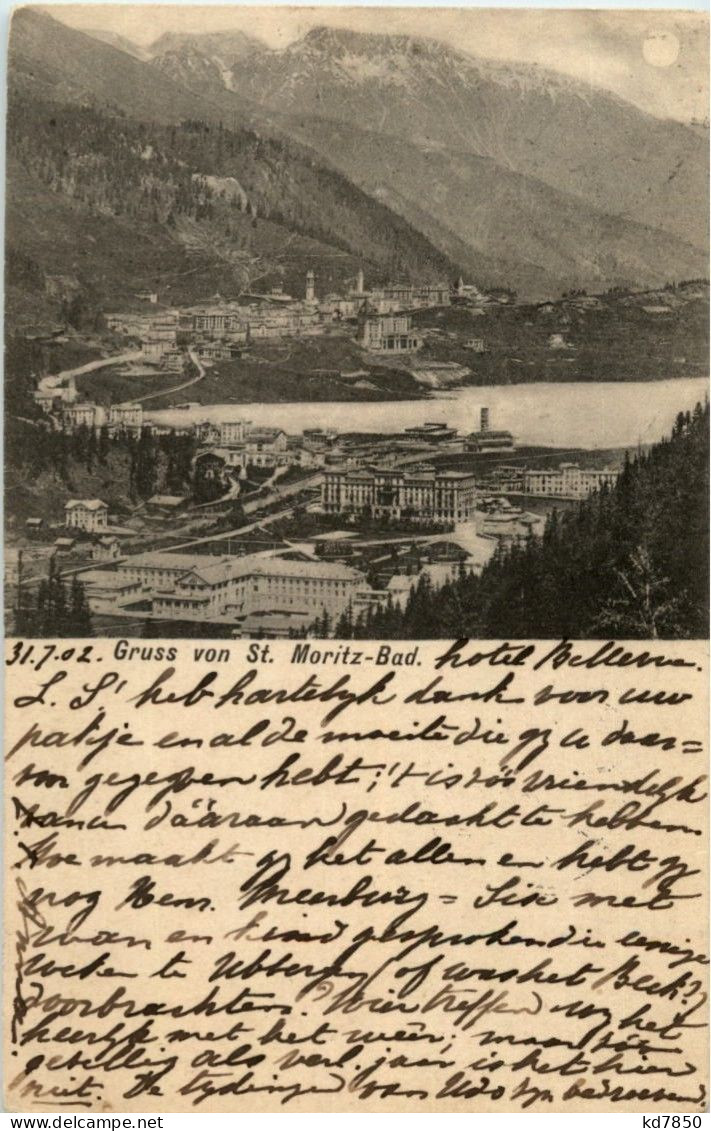 31.7.02. Gruss von St. Moritz-Bad. hotel Bellevue.
L. S! heb hartelyk dank voor uw
pakje en al de moeite die gy u daar=
voor gegeven hebt; 't is zóó vriendelyk
van u dááraan gedacht te hebben.
Hoe maakt gy het allen en hebt gy
nog Hern. Meerburg = Six met
man en kind gesproken die eenige
weken te Ubbergen (of was het Beek?)
doorbrachten? Wier treffen wy het
heerlyk met het weêr; maar zóó
gezellig als verl. jaar is het hier
niet. De tydingen van Udo zyn bedroevend.
kd7850